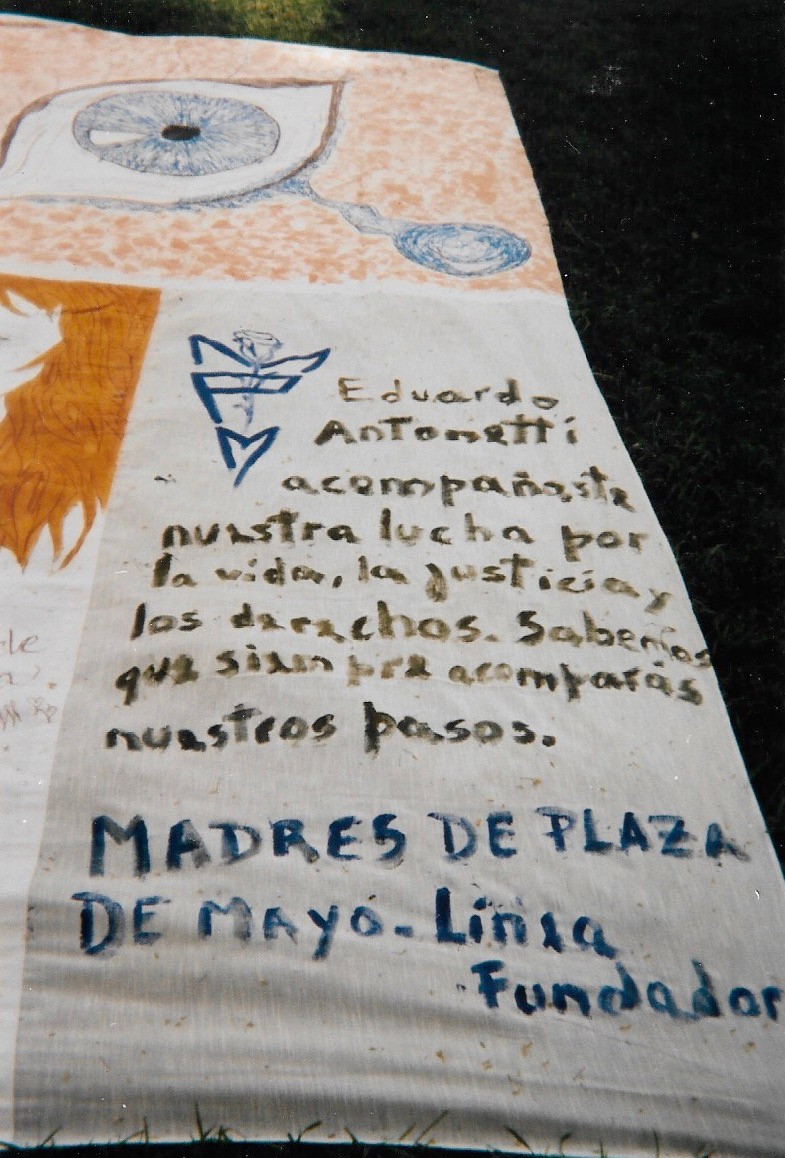 Eduardo
Antonetti
acompañaste
nuestra lucha por
la vida, la justicia y
los derechos. Sabemos
que siempre acomparás
nuestros pasos.
MADRES DE PLAZA
DE MAYO-Línea
Fundador